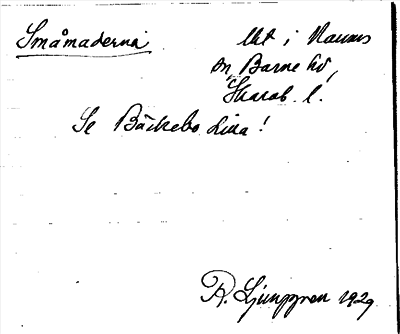 Småmaderna
lht i Naums
sn, Barne hd,
Skarab. l.
Se Bäckebo Lilla!
R. Ljunggren 1929